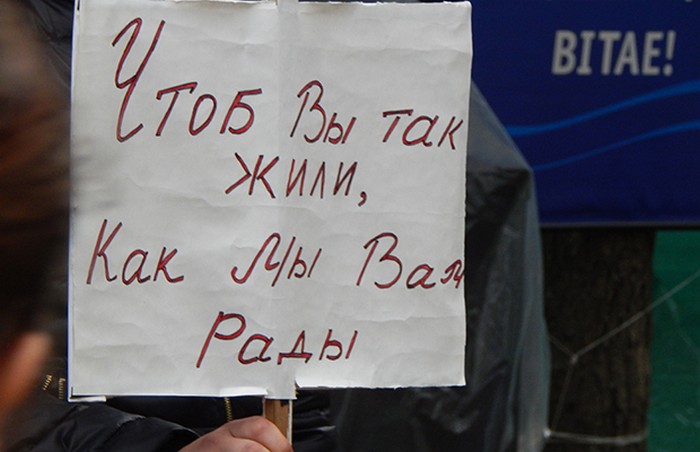 ВІТАЕ!
Чтоб Вы так
жили,
Как Мы Вам
Рады